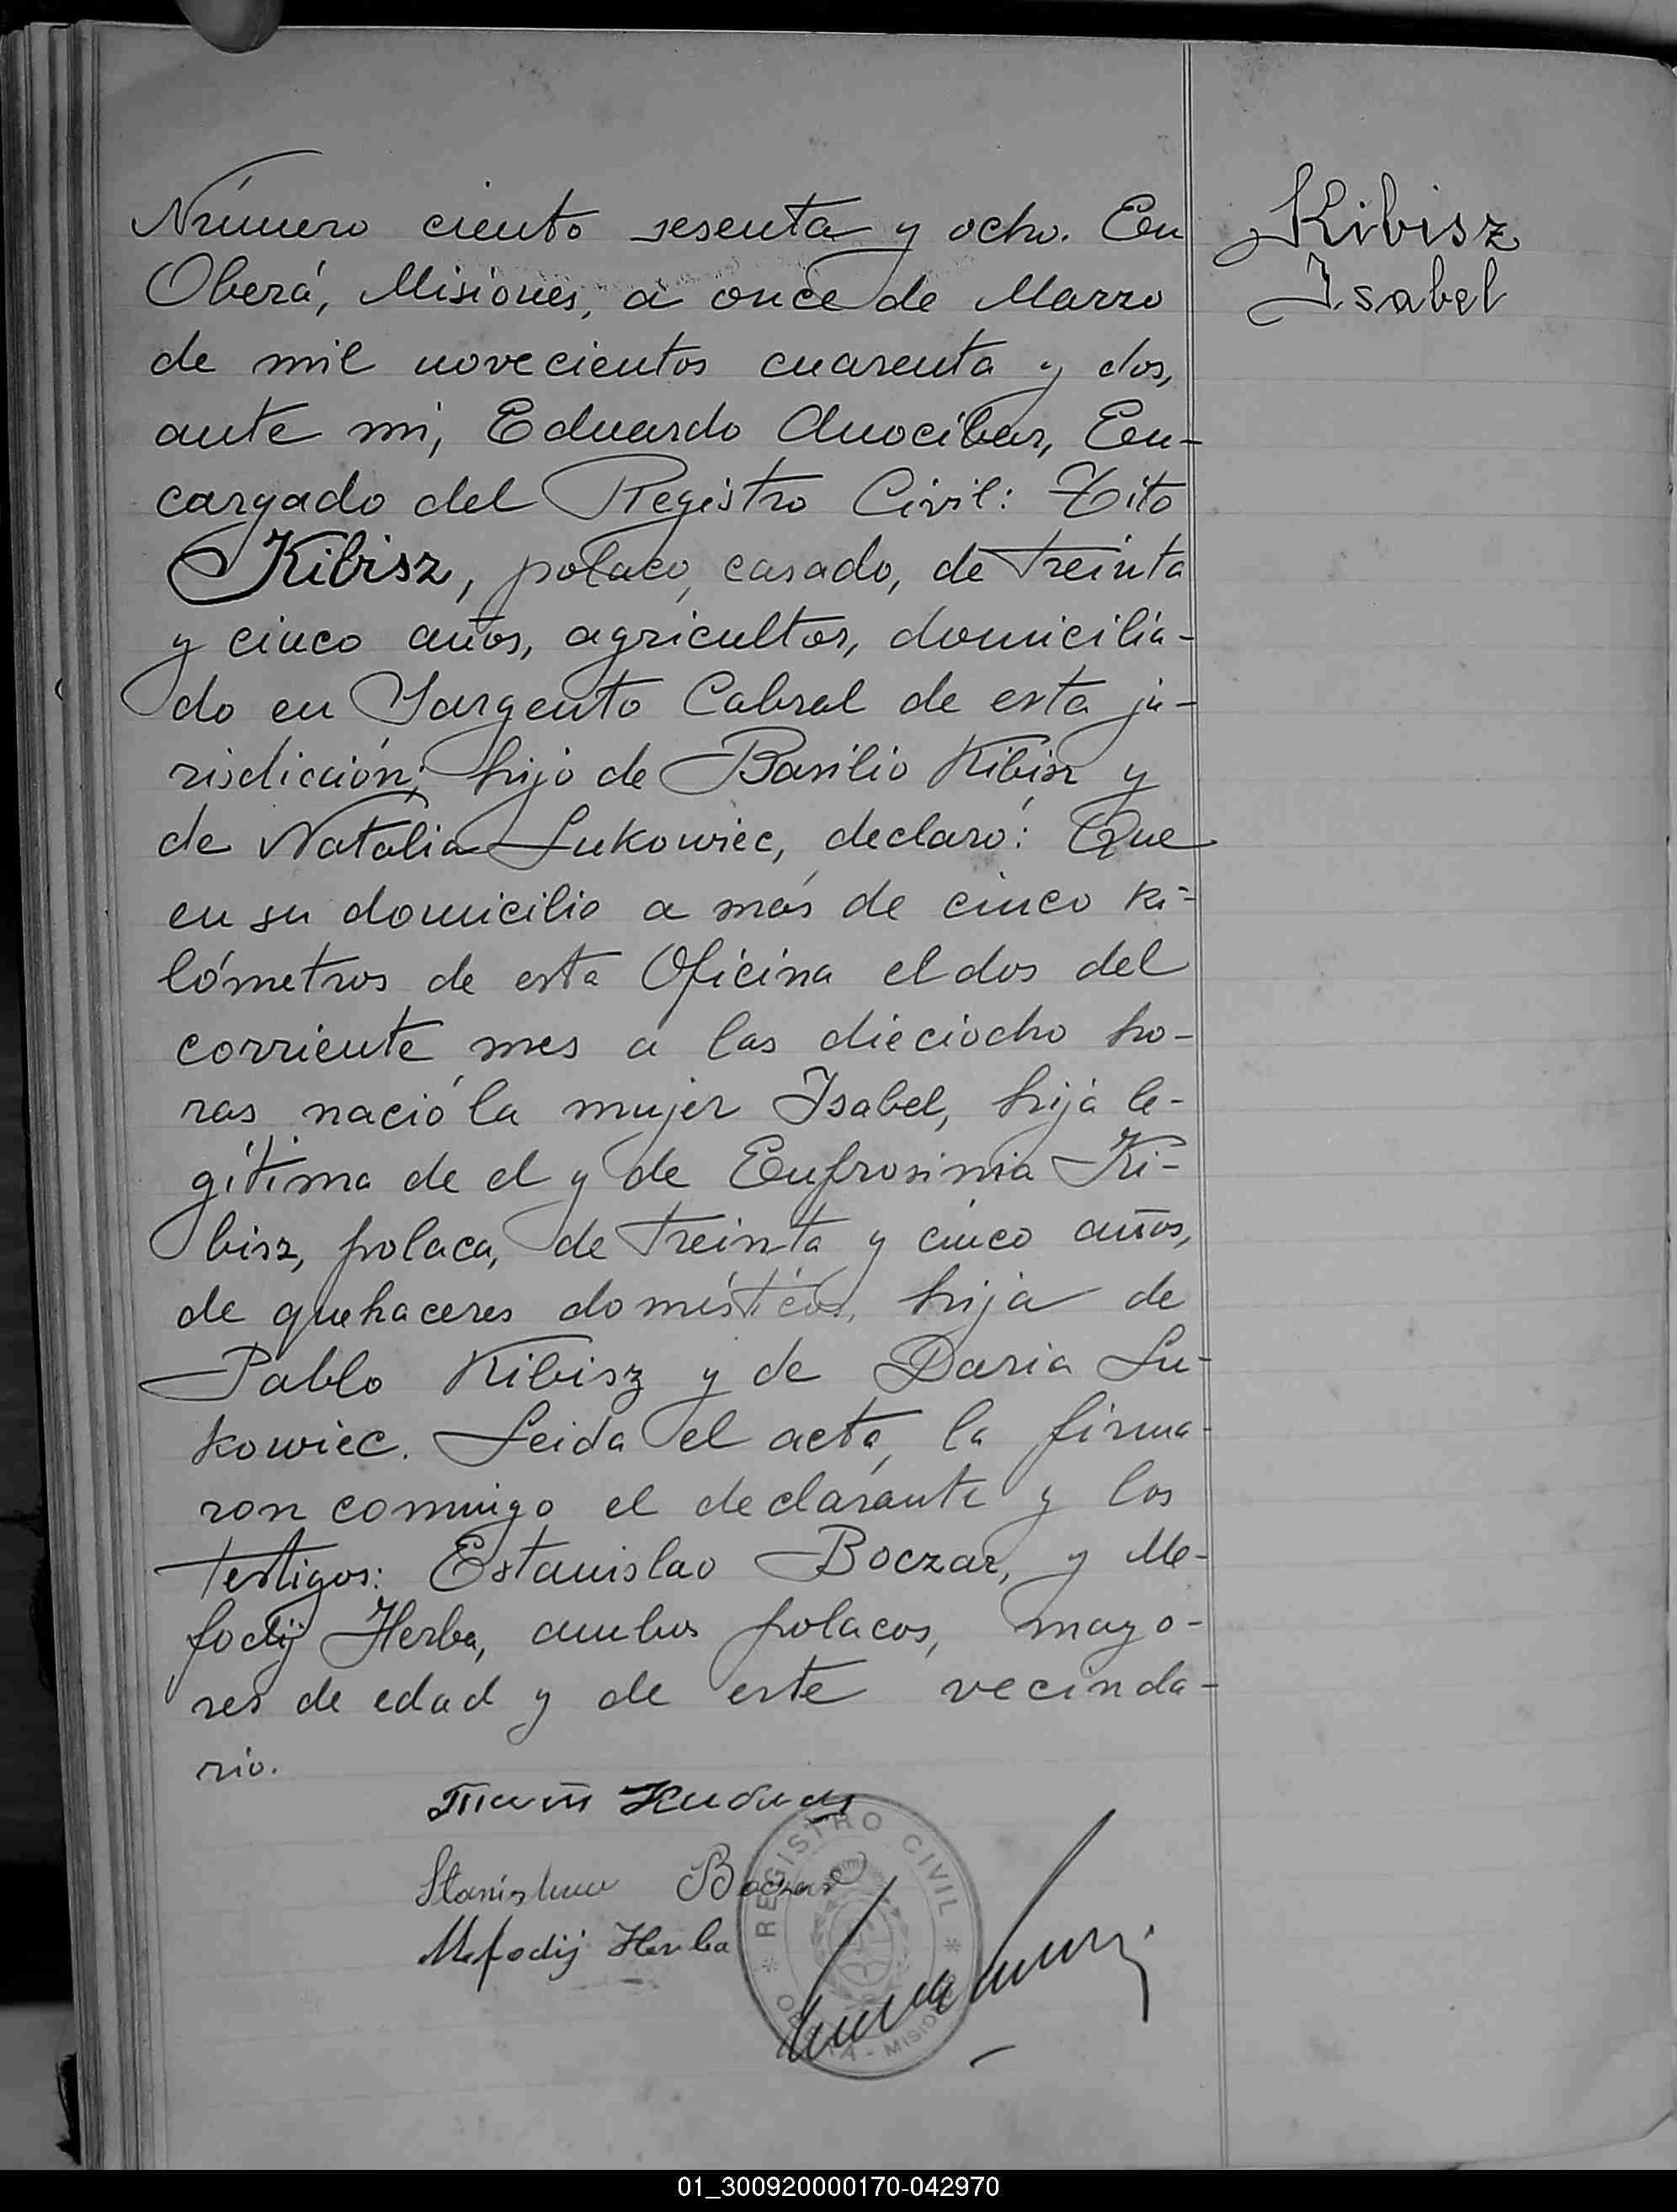 Número ciento sesenta y ocho. En
Oberá, Misiones, a once de Marzo
de mil novecientos cuarenta y dos,
ante mi, Eduardo Anocibar, En-
cargado del Registro Civil: Tito
Kibisz, polaco, casado, de treinta
y cinco años, agricultor, domicilia-
do en Sargento Cabral de esta ju-
risdicción; hijo de Basilio Kibisz y
de Natalia Lukowiec, declaró: Que
en su domicilio a más de cinco ki-
lómetros de esta Oficina el dos del
corriente mes a las dieciocho ho-
ras nació la mujer Isabel, hija le-
gítima de el y de Eufrosinia Ki-
bisz, polaca, de treinta y cinco años,
de quehaceres domésticos, hija de
Pablo Kibisz y de Daria Lu-
kowiec. Leida el acta, la firma-
ron conmigo el declarante y los
testigos: Estanislao Boczar, y Me-
fodij Herba, ambos polacos, mayo-
res de edad y de este vecinda-
rio.
Kibisz
Isabel
Stanisław Boczar
Mefodij Herba
* REGISTRO CIVIL *
OBERA - MISIONES
01_300920000170-042970